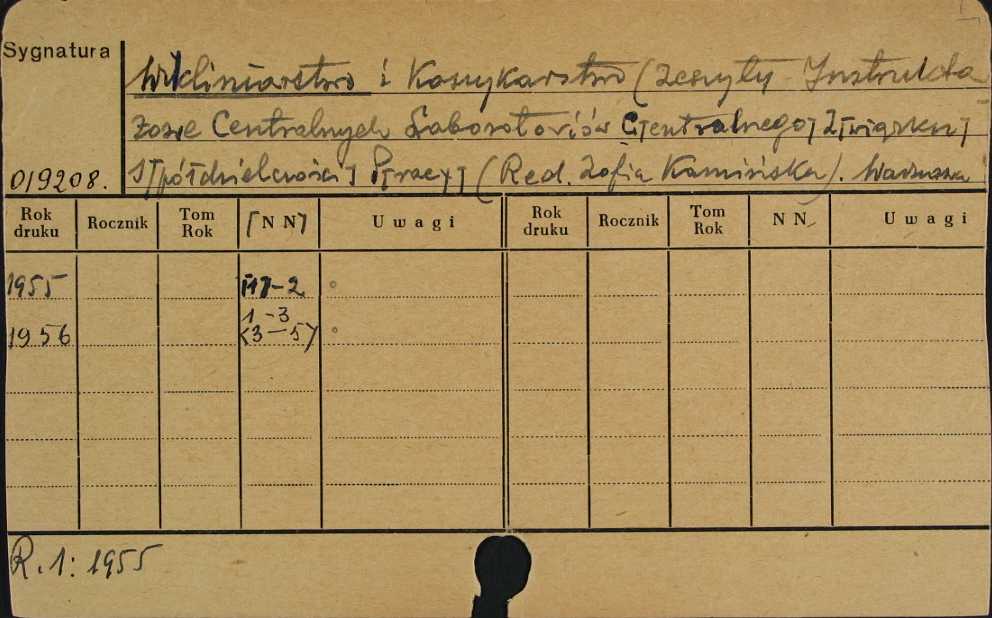 Sygnatura
Wikliniarstwo i Koszykarstwo (Zeszyty Instrukta
żowe Centralnych Laboratoriów C[entralnego] Z[wiązku]
S[półdzielczości] P[racy] (Red. Zofia Kamińska). Warszawa
0/9208.
Rok druku Rocznik Tom Rok [NN] Uwagi Rok druku Rocznik Tom Rok NN Uwagi
1955 1-2
1-3
1956 <3-5>
R. 1: 1955